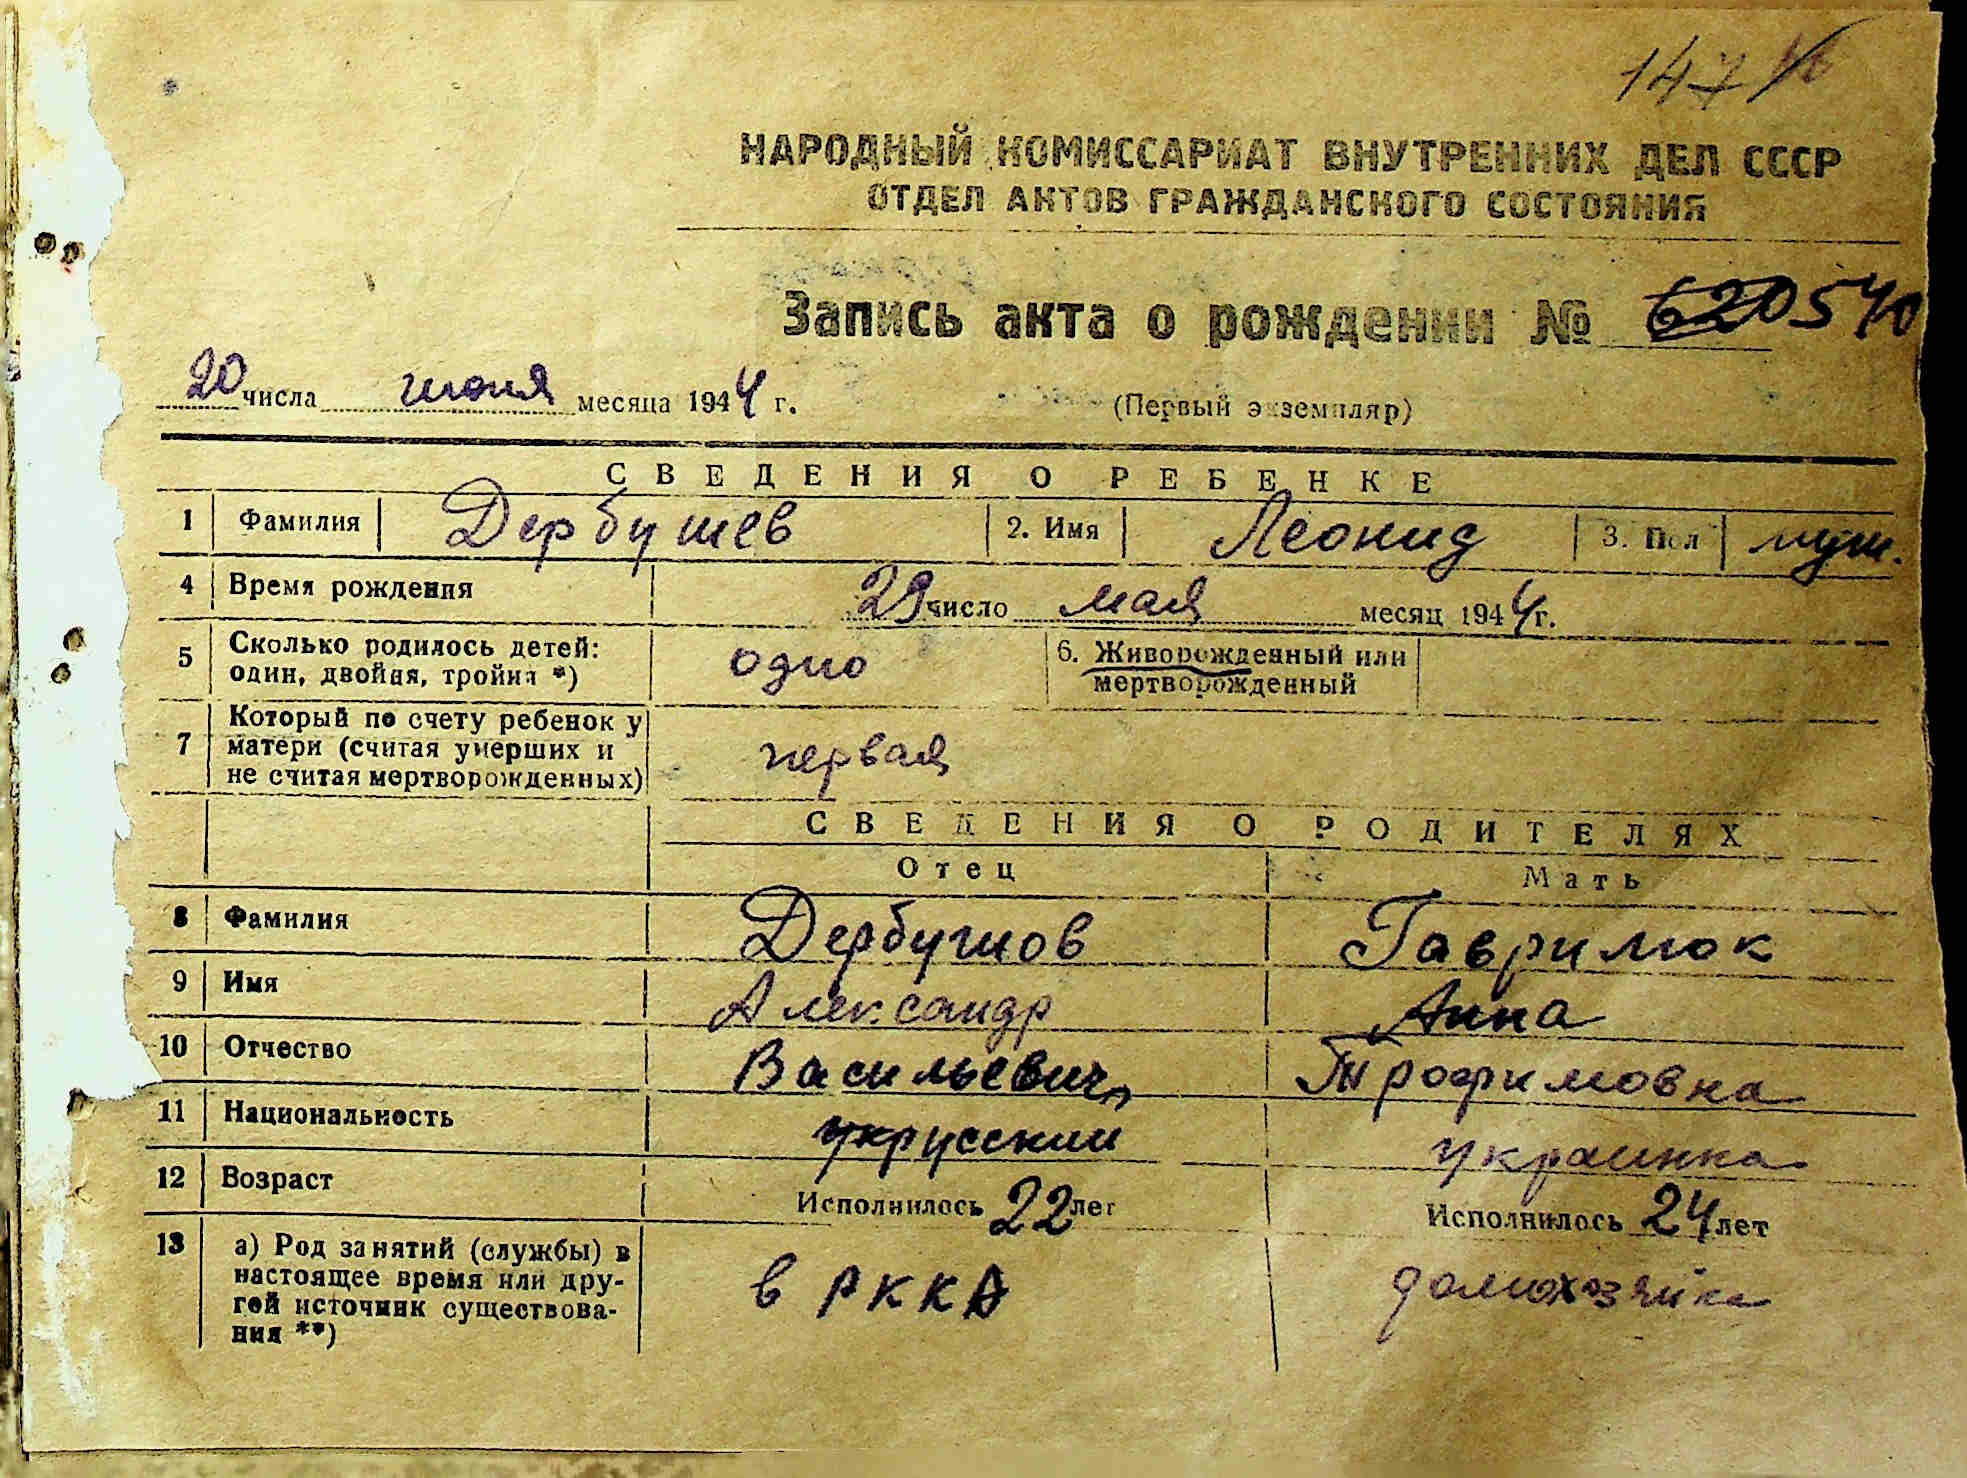 147
НАРОДНЫЙ КОМИССАРИАТ ВНУТРЕННИХ ДЕЛ СССР
ОТДЕЛ АКТОВ ГРАЖДАНСКОГО СОСТОЯНИЯ
Запись акта о рождении № 620 540
20 числа июня месяца 1944 г. (Первый экземпляр)
СВЕДЕНИЯ О РЕБЕНКЕ
1 Фамилия Дербушев 2. Имя Леонид 3. Пол муж.
4 Время рождения 29 число мая месяц 1944 г.
5 Сколько родилось детей: одно 6. Живорожденный или
один, двойня, тройня *) мертворожденный
Который по счету ребенок у
7 матери (считая умерших и первая
не считая мертворожденных)
СВЕДЕНИЯ О РОДИТЕЛЯХ
Отец Мать
8 Фамилия Дербушов Гаврилюк
9 Имя Александр Анна
10 Отчество Васильевич Трофимовна
11 Национальность укрусский украинка
12 Возраст Исполнилось 22 лет Исполнилось 24 лет
13 а) Род занятий (службы) в
настоящее время или дру- в РККА домохозяйка
гой источник существова-
ния **)